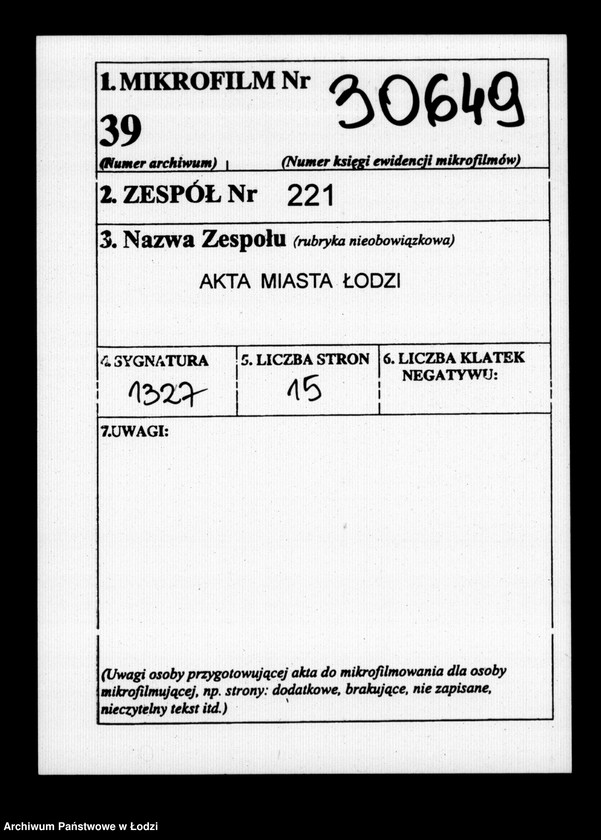 1. MIKROFILM Nr 30649
39
(Numer archiwum) (Numer księgi ewidencji mikrofilmów)
2. ZESPÓŁ Nr 221
3. Nazwa Zespołu (rubryka nieobowiązkowa)
AKTA MIASTA ŁODZI
4. SYGNATURA 5. LICZBA STRON 6. LICZBA KLATEK
NEGATYWU:
1327 15
7.UWAGI:
(Uwagi osoby przygotowującej akta do mikrofilmowania dla osoby
mikrofilmującej, np. strony: dodatkowe, brakujące, nie zapisane,
nieczytelny tekst itd.)
Archiwum Państwowe w Łodzi